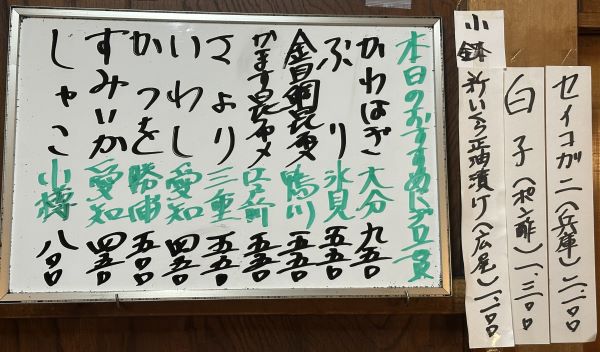 セイコガニ(兵庫)二、一〇〇
白子(ポン酢)一、三〇〇
小鉢
新いくら正油漬け(広尾)一、一〇〇
本日のおすすめにぎり一貫
かわはぎ 大分 九五〇
ぶり 氷見 五五〇
金目鯛昆布 鴨川 五五〇
かます昆布〆 江戸前 五五〇
さより 三重 五五〇
いわし 愛知 四五〇
かつを 勝浦 五〇〇
すみいか 愛知 四五〇
しゃこ 小樽 八〇〇